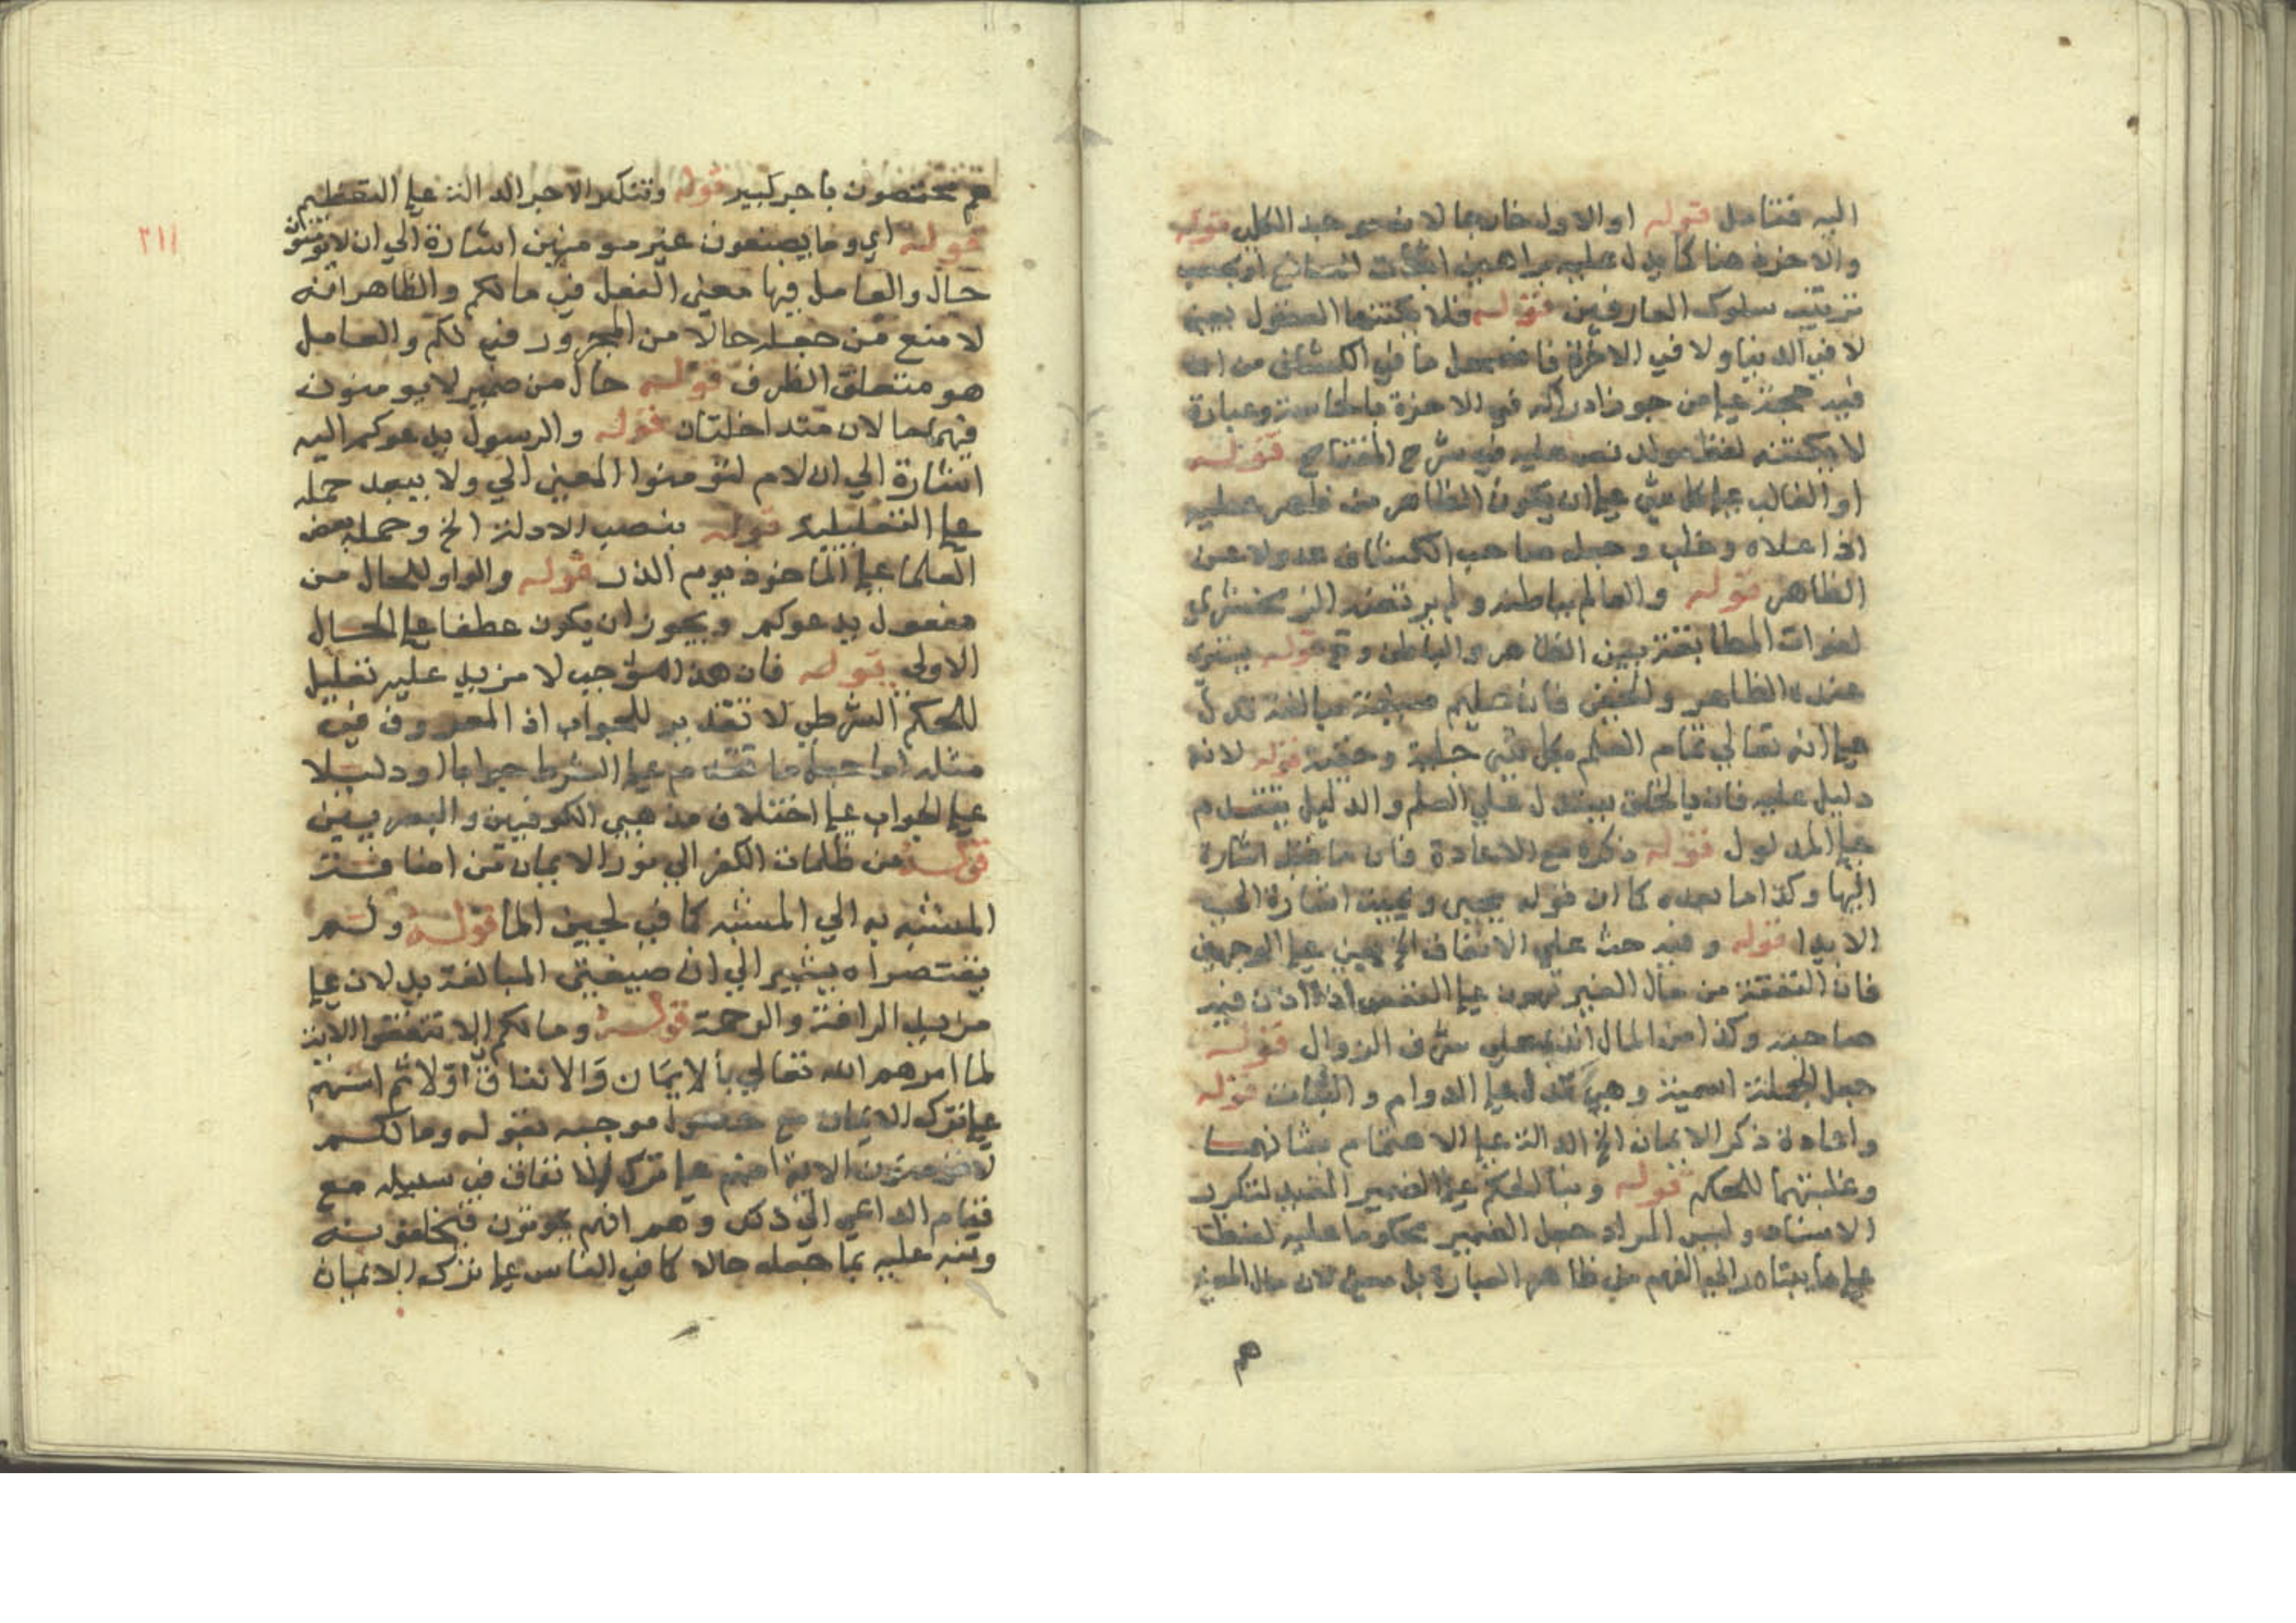 اليه فتامل قوله او الاول خارجا لانه هو مبدا الكل قوله
والاخر ذهنا كما يدل عليه براهين اثبات الصانع او بحسب
ترتيب سلوك العارفين قوله فلا يكتنهها العقول يعني
لا في الدنيا ولا في الاخرة فاضمحل ما في الكشاف من ان
فيه حجة علي من جوز ادراكه في الاخرة بالحاسة وعبارة
لا يكتنه لفظ مولد نص عليه في شرح المفتاح قوله
او الغالب علي كل شي علي ان يكون الظاهر من ظهر عليه
اذا علاه وغلب وجعله صاحب الكشاف عدولا عن
الظاهر قوله والعالم بباطنه ولم يرتضه الزمخشري
لفوات المطابقة بين الظاهر والباطن ح قوله يستوي
عنده الظاهر والخفي فان عليم صيغة مبالغة تدل
علي انه تعالي تمام العلم بكل شي جلية وخفية قوله لانه
دليل عليه فان بالخلق يستدل علي العلم والدليل يتقدم
علي المدلول قوله ذكره مع الاعادة فان ما قبله اشارة
اليها وكذا ما بعده كما ان قوله يحيي ويميت اشارة الي
الابدا قوله وفيه حث علي الانفاق الخ يعني علي الوجهين
فان النفقة من مال الغير تهون علي النفس اذا اذن فيه
صاحبه وكذا من المال الذي علي شرف الزوال قوله
جعل الجملة اسمية وهي تدل علي الدوام والثبات قوله
واعادة ذكر الايمان الخ الدالة علي الاهتمام بشانهما
وعليتهما للحكم قوله وبنا الحكم علي الضمير المفيد لتكرر
الاسناد وليس المراد جعل الضمير محكوما عليه لفظا
علي ما يتبادر الي الفهم من ظاهر العبارة بل معني لان مال المعني
هم
هم مختصون باجر كبير قوله وتنكير الاجر الدالة علي التعظيم
قوله اي وما يصنعون غير مومنين اشارة الي ان لا تومنون
٢١١
حال والعامل فيها معني الفعل في مالكم والظاهر انه
لا منع من جعله حالا من المجرور في لكم والعامل
هو متعلق الظرف قوله حال من ضمير لا يومنون
فهما حالان متداخلتان قوله والرسول يدعوكم اليه
اشارة الي ان لام لتومنوا المعني الي ولا يبعد حمله
علي التعليلية قوله بنصب الادلة الخ وحمله بعض
العلما علي الماخوذ يوم الذر قوله والواو للحال من
مفعول يدعوكم ويجوز ان يكون عطفا علي الحال
الاولي قوله فان هذا موجب لا مزيد عليه تعليل
للحكم الشرطي لا تقدير للجواب اذ المعروف في
مثله اما جعل ما تقدم علي الشرط جوابا او دليلا
علي الجواب علي اختلاف مذهبي الكوفيين والبصريين
قوله من ظلمات الكفر الي نور الايمان من اضافة
المشبه به الي المشبه كما في لجين الما قوله ولم
يقتصر اه يشير الي ان صيغتي المبالغة يدلان علي
مزيد الرافة والرحمة قوله ومالكم الا تنفقوا الاية
لما امرهم الله تعالي بالايمان والانفاق اولا ثم انبهم
علي ترك الايمان مع حصول موجبه بقوله ومالكم
لا تومنون الاية انبهم علي ترك الانفاق في سبيله مع
قيام الداعي الي ذلك وهم انهم يموتون فيخلفونه
ونبه عليه بما جعله حالا كما في الناس علي ترك الايمان